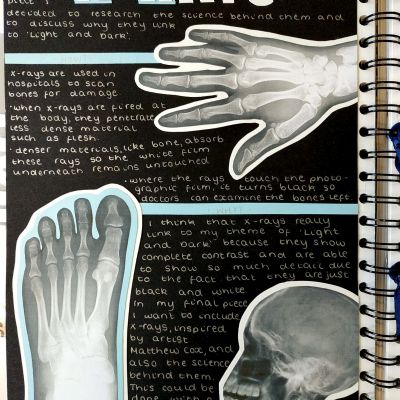 piece I
decided to research the science behind them and
to discuss why they link
to 'Light and Dark'.
X-rays are used in
hospitals to scan
bones for damage.
• when x-rays are fired at
the body, they penetrate
less dense material
such as flesh.
• denser materials, like bone, absorb
these rays so the white film
underneath remains untouched
• where the rays touch the photo-
graphic film, it turns black so
doctors can examine the bones left.
I think that x-rays really
link to my theme of 'Light
and Dark' because they show
complete contrast and are able
to show so much detail due
to the fact that they are just
black and white.
In my final piece
I want to include
x-rays, inspired
by artist
Matthew Cox, and
also the science
behind them.
This could be
done with a